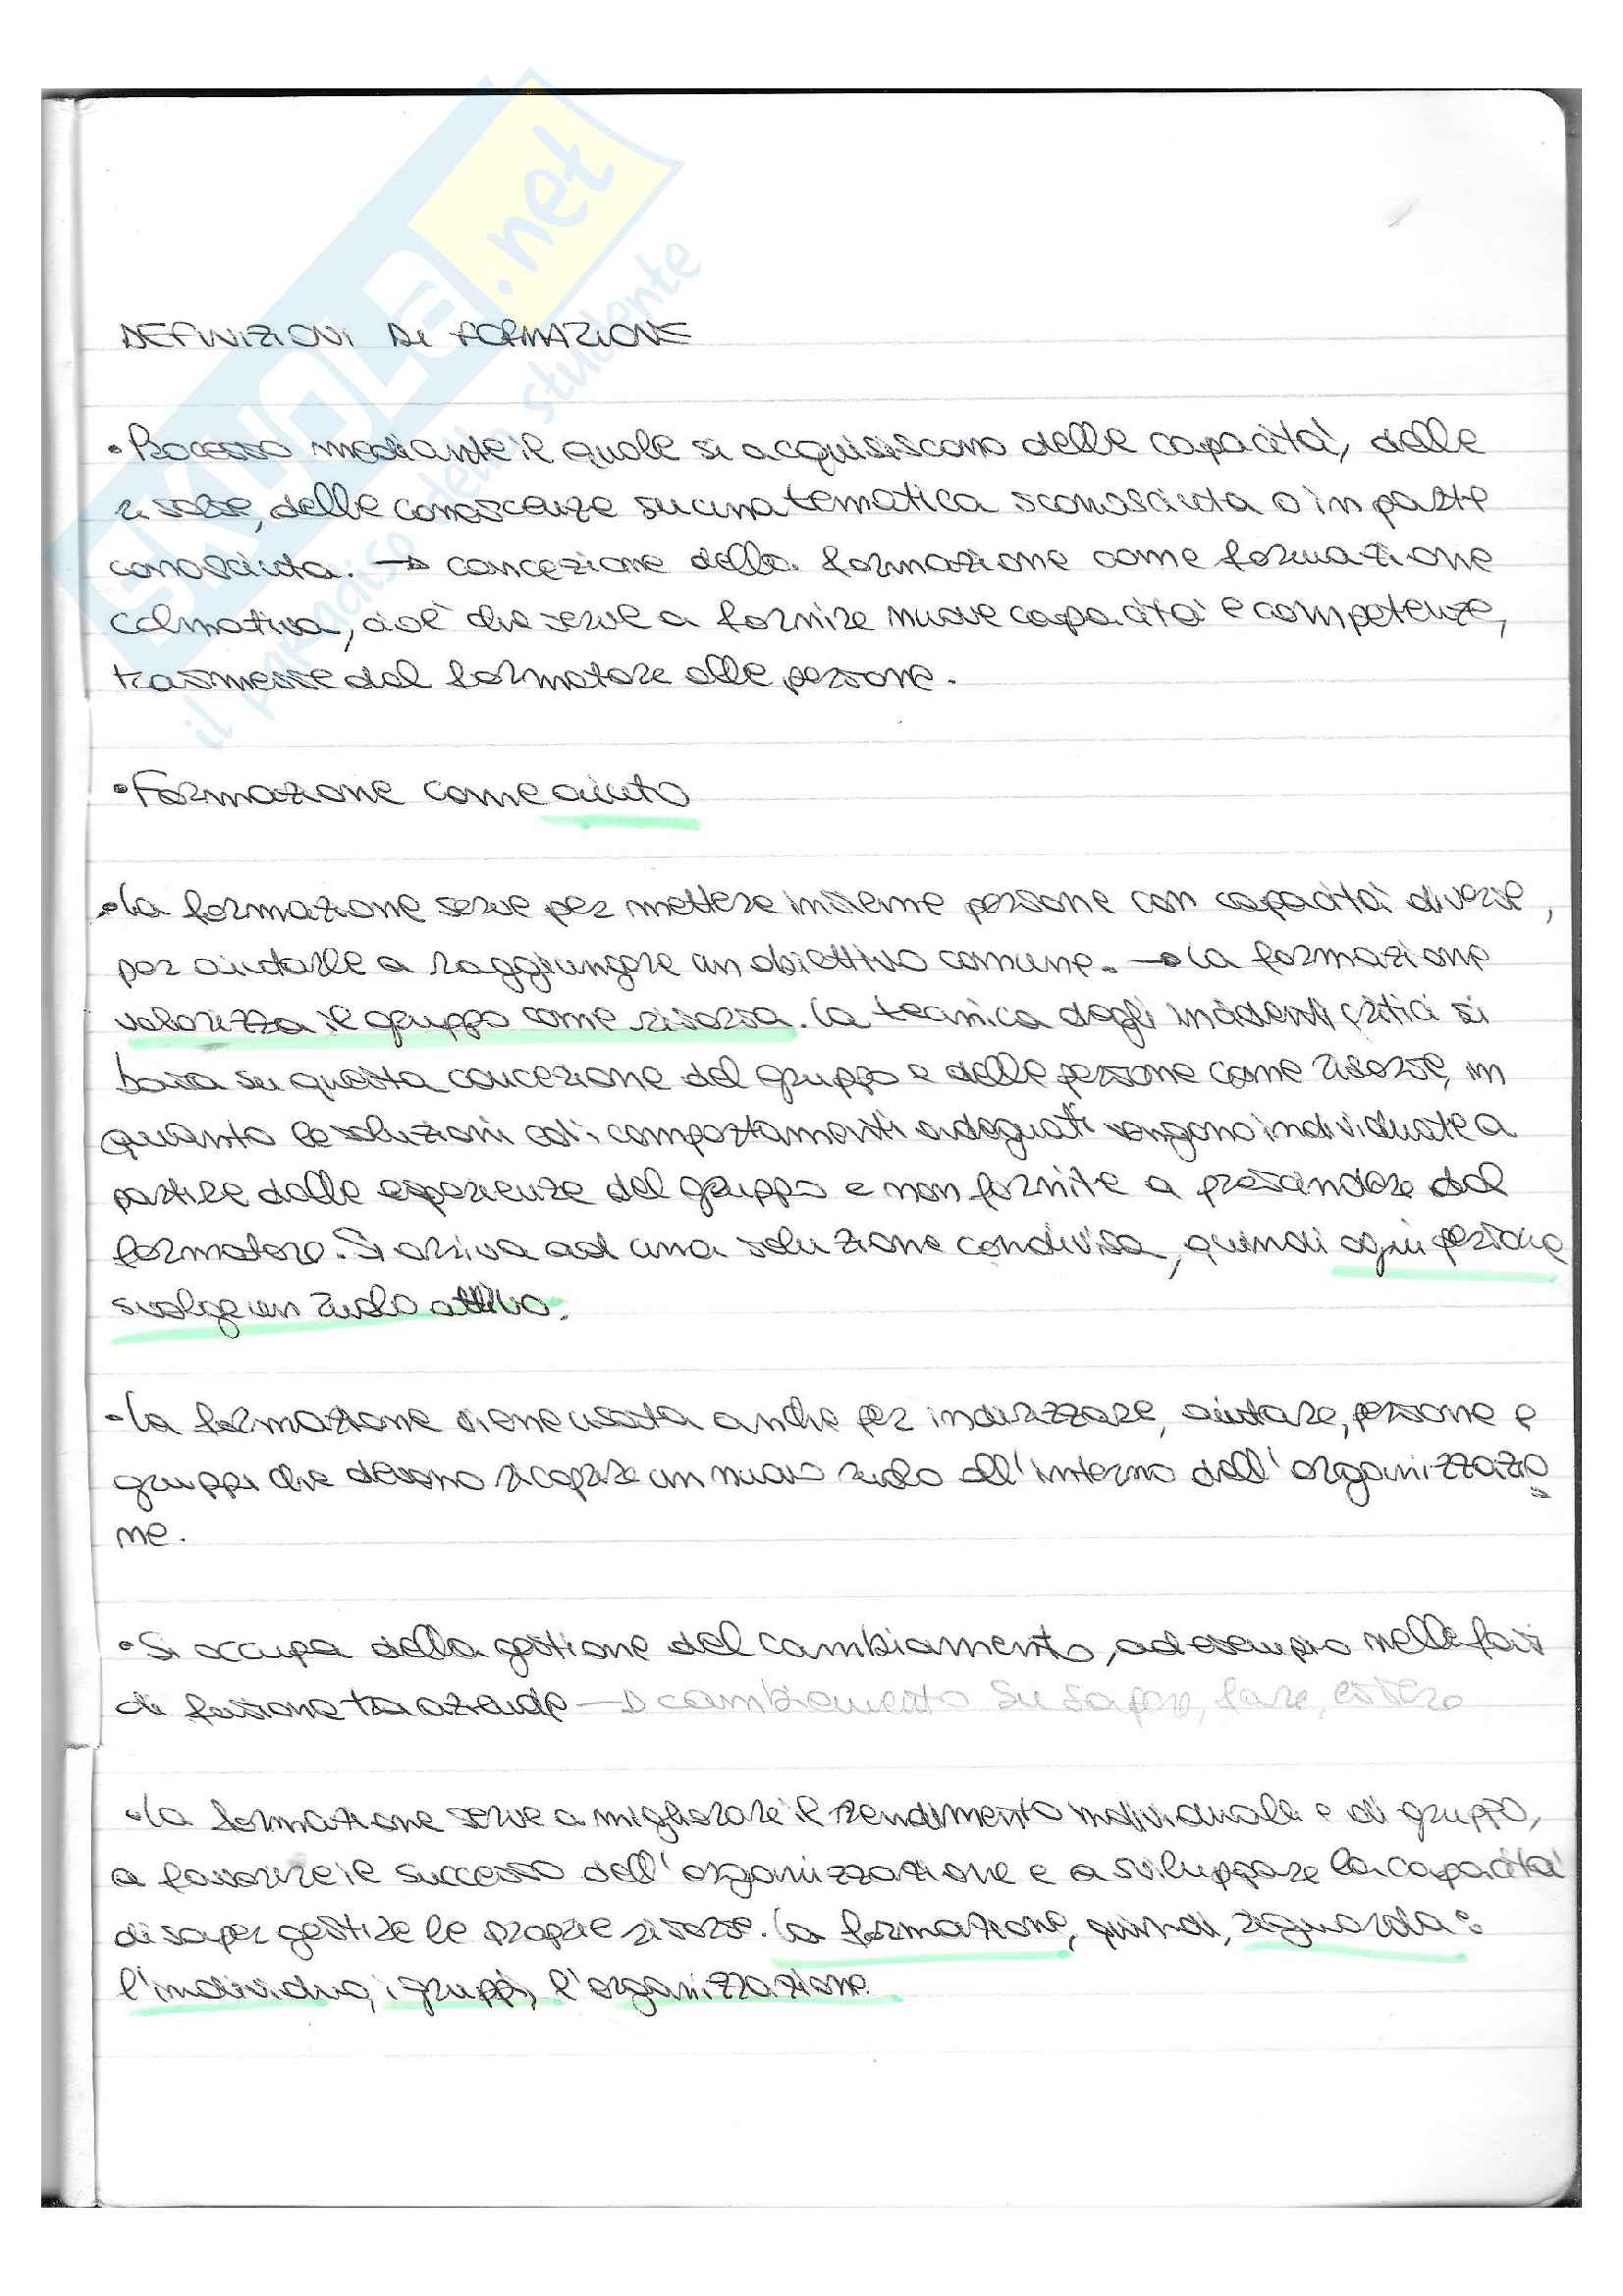 SKUOLA.net
il paradiso dello studente
DEFINIZIONI DI FORMAZIONE
• Processo mediante il quale si acquisiscono delle capacità, delle
risorse, delle conoscenze su una tematica sconosciuta o in parte
conosciuta. → concezione della formazione come formazione
colmativa, cioè che serve a fornire nuove capacità e competenze,
trasmesse dal formatore alle persone.
• Formazione come aiuto
• La formazione serve per mettere insieme persone con capacità diverse,
per aiutarle a raggiungere un obiettivo comune. → La formazione
valorizza il gruppo come risorsa. La tecnica degli incidenti critici si
basa su questa concezione del gruppo e delle persone come risorse, in
quanto le soluzioni ed i comportamenti adeguati vengono individuate a
partire dalle esperienze del gruppo e non fornite a prescindere dal
formatore. Si arriva ad una soluzione condivisa, quindi ogni persona
svolge un ruolo attivo.
• La formazione viene usata anche per indirizzare, aiutare, persone e
gruppi che devono ricoprire un nuovo ruolo all'interno dell'organizzazio
ne.
• Si occupa della gestione del cambiamento, ad esempio nelle fasi
di fusione tra aziende → cambiamento su sapere, fare, essere
• La formazione serve a migliorare il rendimento individuale e di gruppo,
a favorire il successo dell'organizzazione e a sviluppare la capacità
di saper gestire le proprie risorse. La formazione, quindi, riguarda:
l'individuo, i gruppi, l'organizzazione.